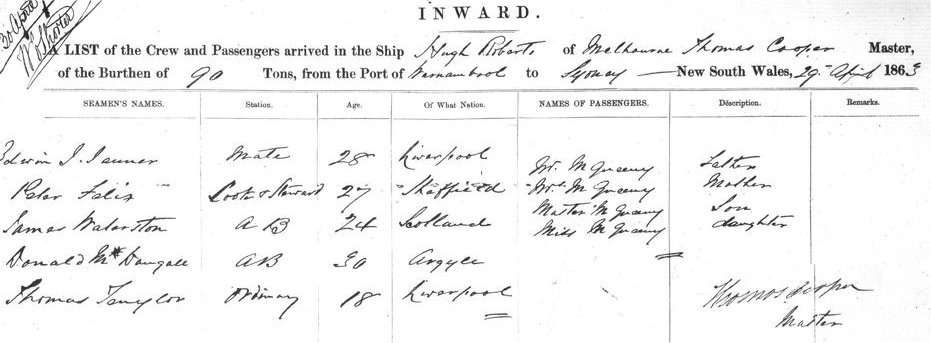 30 April
INWARD.
A LIST of the Crew and Passengers arrived in the Ship Hugh Roberts of Melbourne Thomas Cooper Master,
of the Burthen of 90 Tons, from the Port of Warnambool to Sydney — New South Wales, 29th April 1863
SEAMEN'S NAMES. Station. Age. Of What Nation. NAMES OF PASSENGERS. Description. Remarks.
Edwin J. Mate 28 Liverpool Mr. McGreavy Father
Peter Felix Cook & Steward 27 Sheffield Mrs McGreavy Mother
James Waterston AB 24 Scotland Master McGreavy Son
Miss McGreavy daughter
Donald McDougall AB 30 Argyle
Thomas Taylor Ordinary 18 Liverpool Thomas Cooper
Master